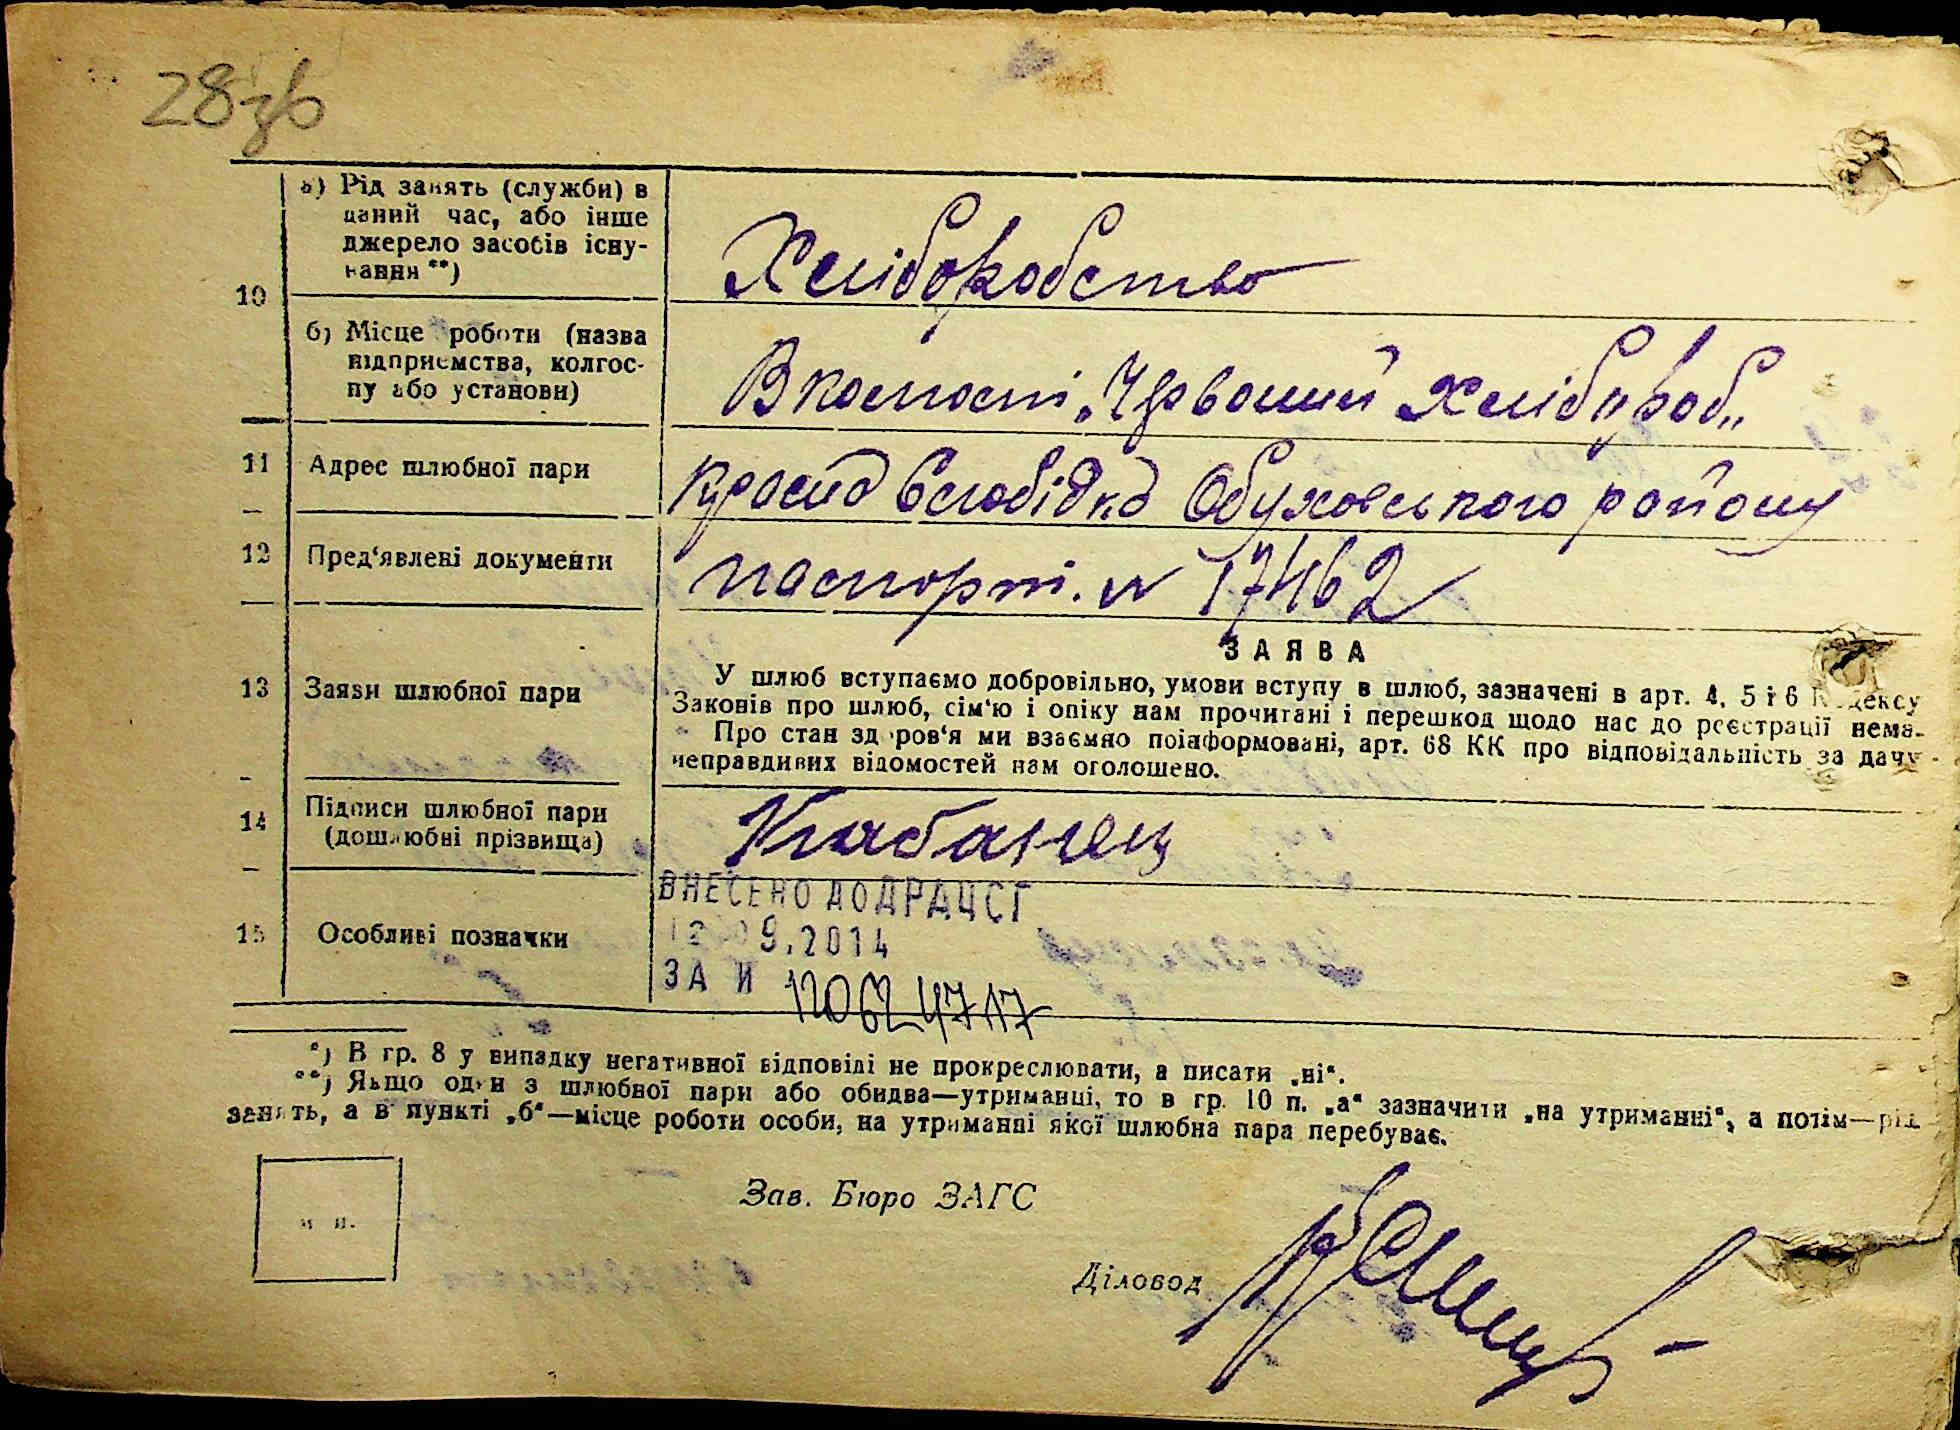 28зв
10
а) Рід занять (служби) в
даний час, або інше
джерело засобів існу-
вання **)
Хліборобство
б) Місце роботи (назва
підприємства, колгос-
пу або установи)
В колгоспі „Червоний Хлібороб„
11
Адрес шлюбної пари
Красна Слобідка Обуховського району
12
Пред‘явлені документи
паспорт. N 17462
13
Заяви шлюбної пари
ЗАЯВА
У шлюб вступаємо добровільно, умови вступу в шлюб, зазначені в арт. 4, 5 і 6 Кодексу
Законів про шлюб, сім‘ю і опіку нам прочитані і перешкод щодо нас до реєстрації нема.
Про стан здоров‘я ми взаємно поінформовані, арт. 68 КК про відповідальність за дачу
неправдивих відомостей нам оголошено.
14
Підписи шлюбної пари
(дошлюбні прізвища)
15
Особливі позначки
ВНЕСЕНО ДО ДРАЦСГ
9.2014
ЗА N
*) В гр. 8 у випадку негативної відповіді не прокреслювати, а писати „ні“.
**) Якщо один з шлюбної пари або обидва—утриманці, то в гр. 10 п. „а“ зазначити „на утриманні“, а потім—рід
занять, а в пункті „б“—місце роботи особи, на утриманні якої шлюбна пара перебуває.
м п.
Зав. Бюро ЗАГС
Діловод